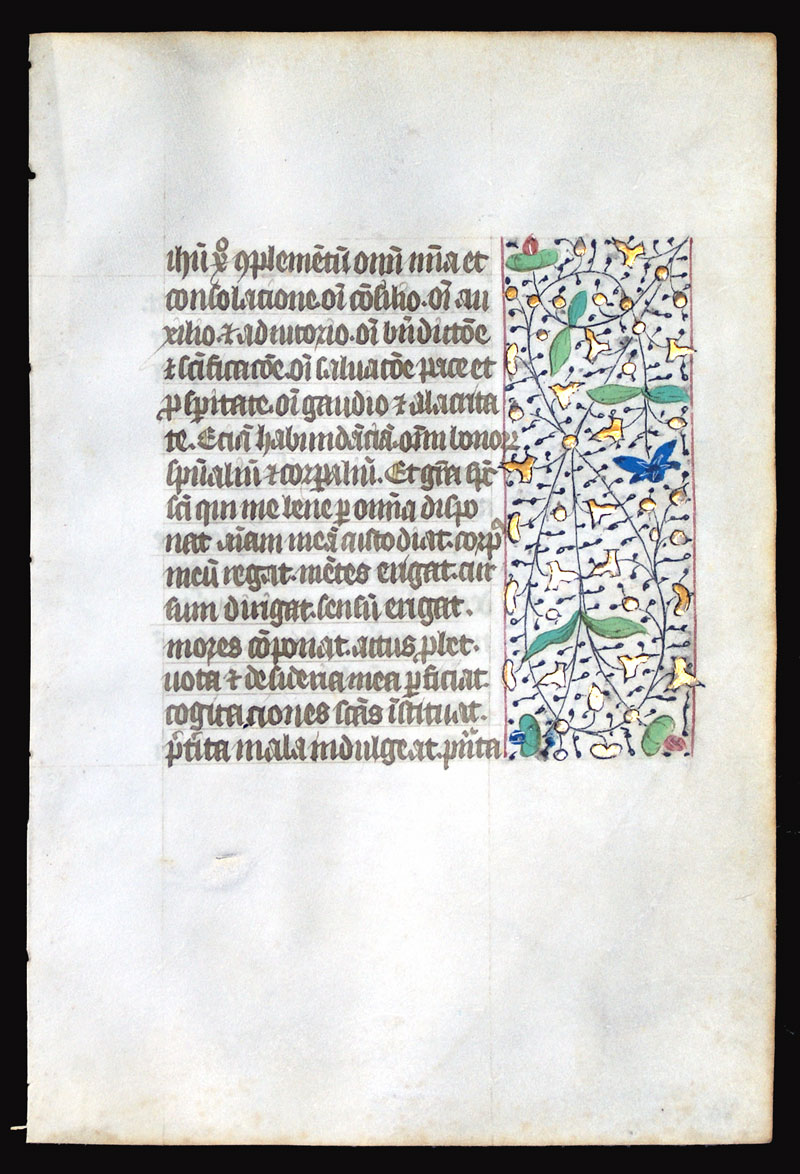 ihū xº ꝯplemētū oniū mīa et
consolatione. oī cōsilio. oī au
xilio. ⁊ adiutorio. oī bn̄dictōe
⁊ scīficatōe. oī saluatōe pace et
ꝓspitate. oī gaudio ⁊ alacrita
te. Eciā habundāciā. oīm bonoꝝ
spūaliū ⁊ corpaliū. Et gr̄a spūs
sci qui me bene p omnia dispo
nat aīam meā custodiat. corpꝰ
meū regat. mētes erigat. cur
sum dirigat. sensū erigat.
mores cōponat. actus ꝓbet.
uota ⁊ desideria mea pficiat
cogitaciones scās īstituat.
p̄tita mala indulgeat. pn̄ta